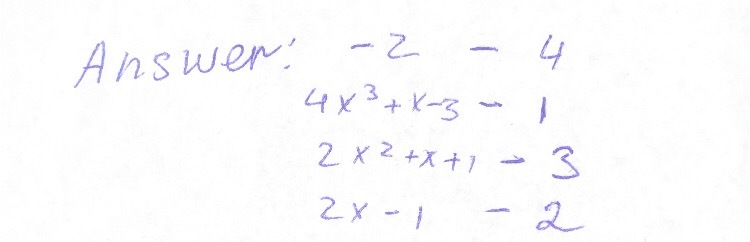 Answer: -2 - 4
4x³+x-3 - 1
2x²+x+1 - 3
2x-1 - 2